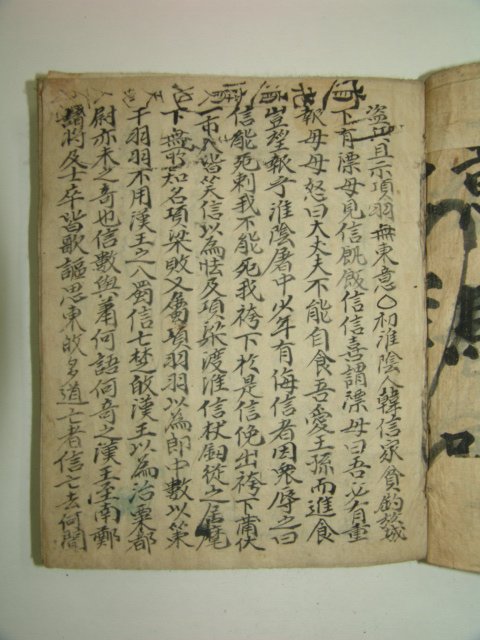 盜且示項羽無東意〇初淮陰人韓信家貧釣於城
下有漂母見信飢飯信信喜謂漂母曰吾必有重
報母母怒曰大丈夫不能自食吾哀王孫而進食
豈望報乎淮陰屠中少年有侮信者因衆辱之曰
信能死刺我不能死我袴下於是信俛出袴下蒲伏
一市人皆笑信以爲怯及項梁渡淮信杖劍從之居麾
下無所知名項梁敗又屬項羽羽以爲郎中數以策
干羽羽不用漢王之入蜀信亡楚故漢王以爲治粟都
尉亦未之奇也信數與蕭何語何奇之漢王至南鄭
諸將及士卒皆歌謳思東故多道亡者信亡去何聞